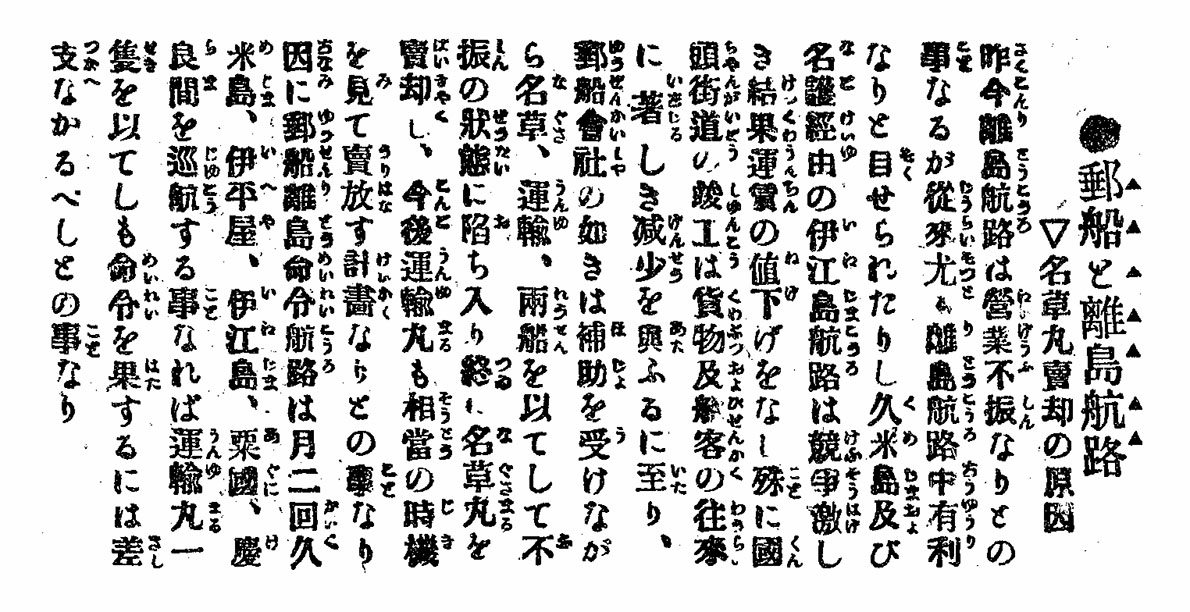 ●郵船と離島航路
▽名草丸賣却の原因
昨今離島航路は營業不振なりとの
事なるが從來尤も離島航路中有利
なりと目せられたりし久米島及び
名護經由の伊江島航路は競爭激し
き結果運賃の値下げをなし殊に國
頭街道の竣工は貨物及船客の往來
に著しき減少を與ふるに至り、
郵船會社の如きは補助を受けなが
ら名草、運輸、兩船を以てして不
振の狀態に陷ち入り終に名草丸を
賣却し、今後運輸丸も相當の時機
を見て賣放す計畫なりとの事なり
因に郵船離島命令航路は月二回久
米島、伊平屋、伊江島、粟國、慶
良間を巡航する事なれば運輸丸一
隻を以てしも命令を果するには差
支なかるべしとの事なり